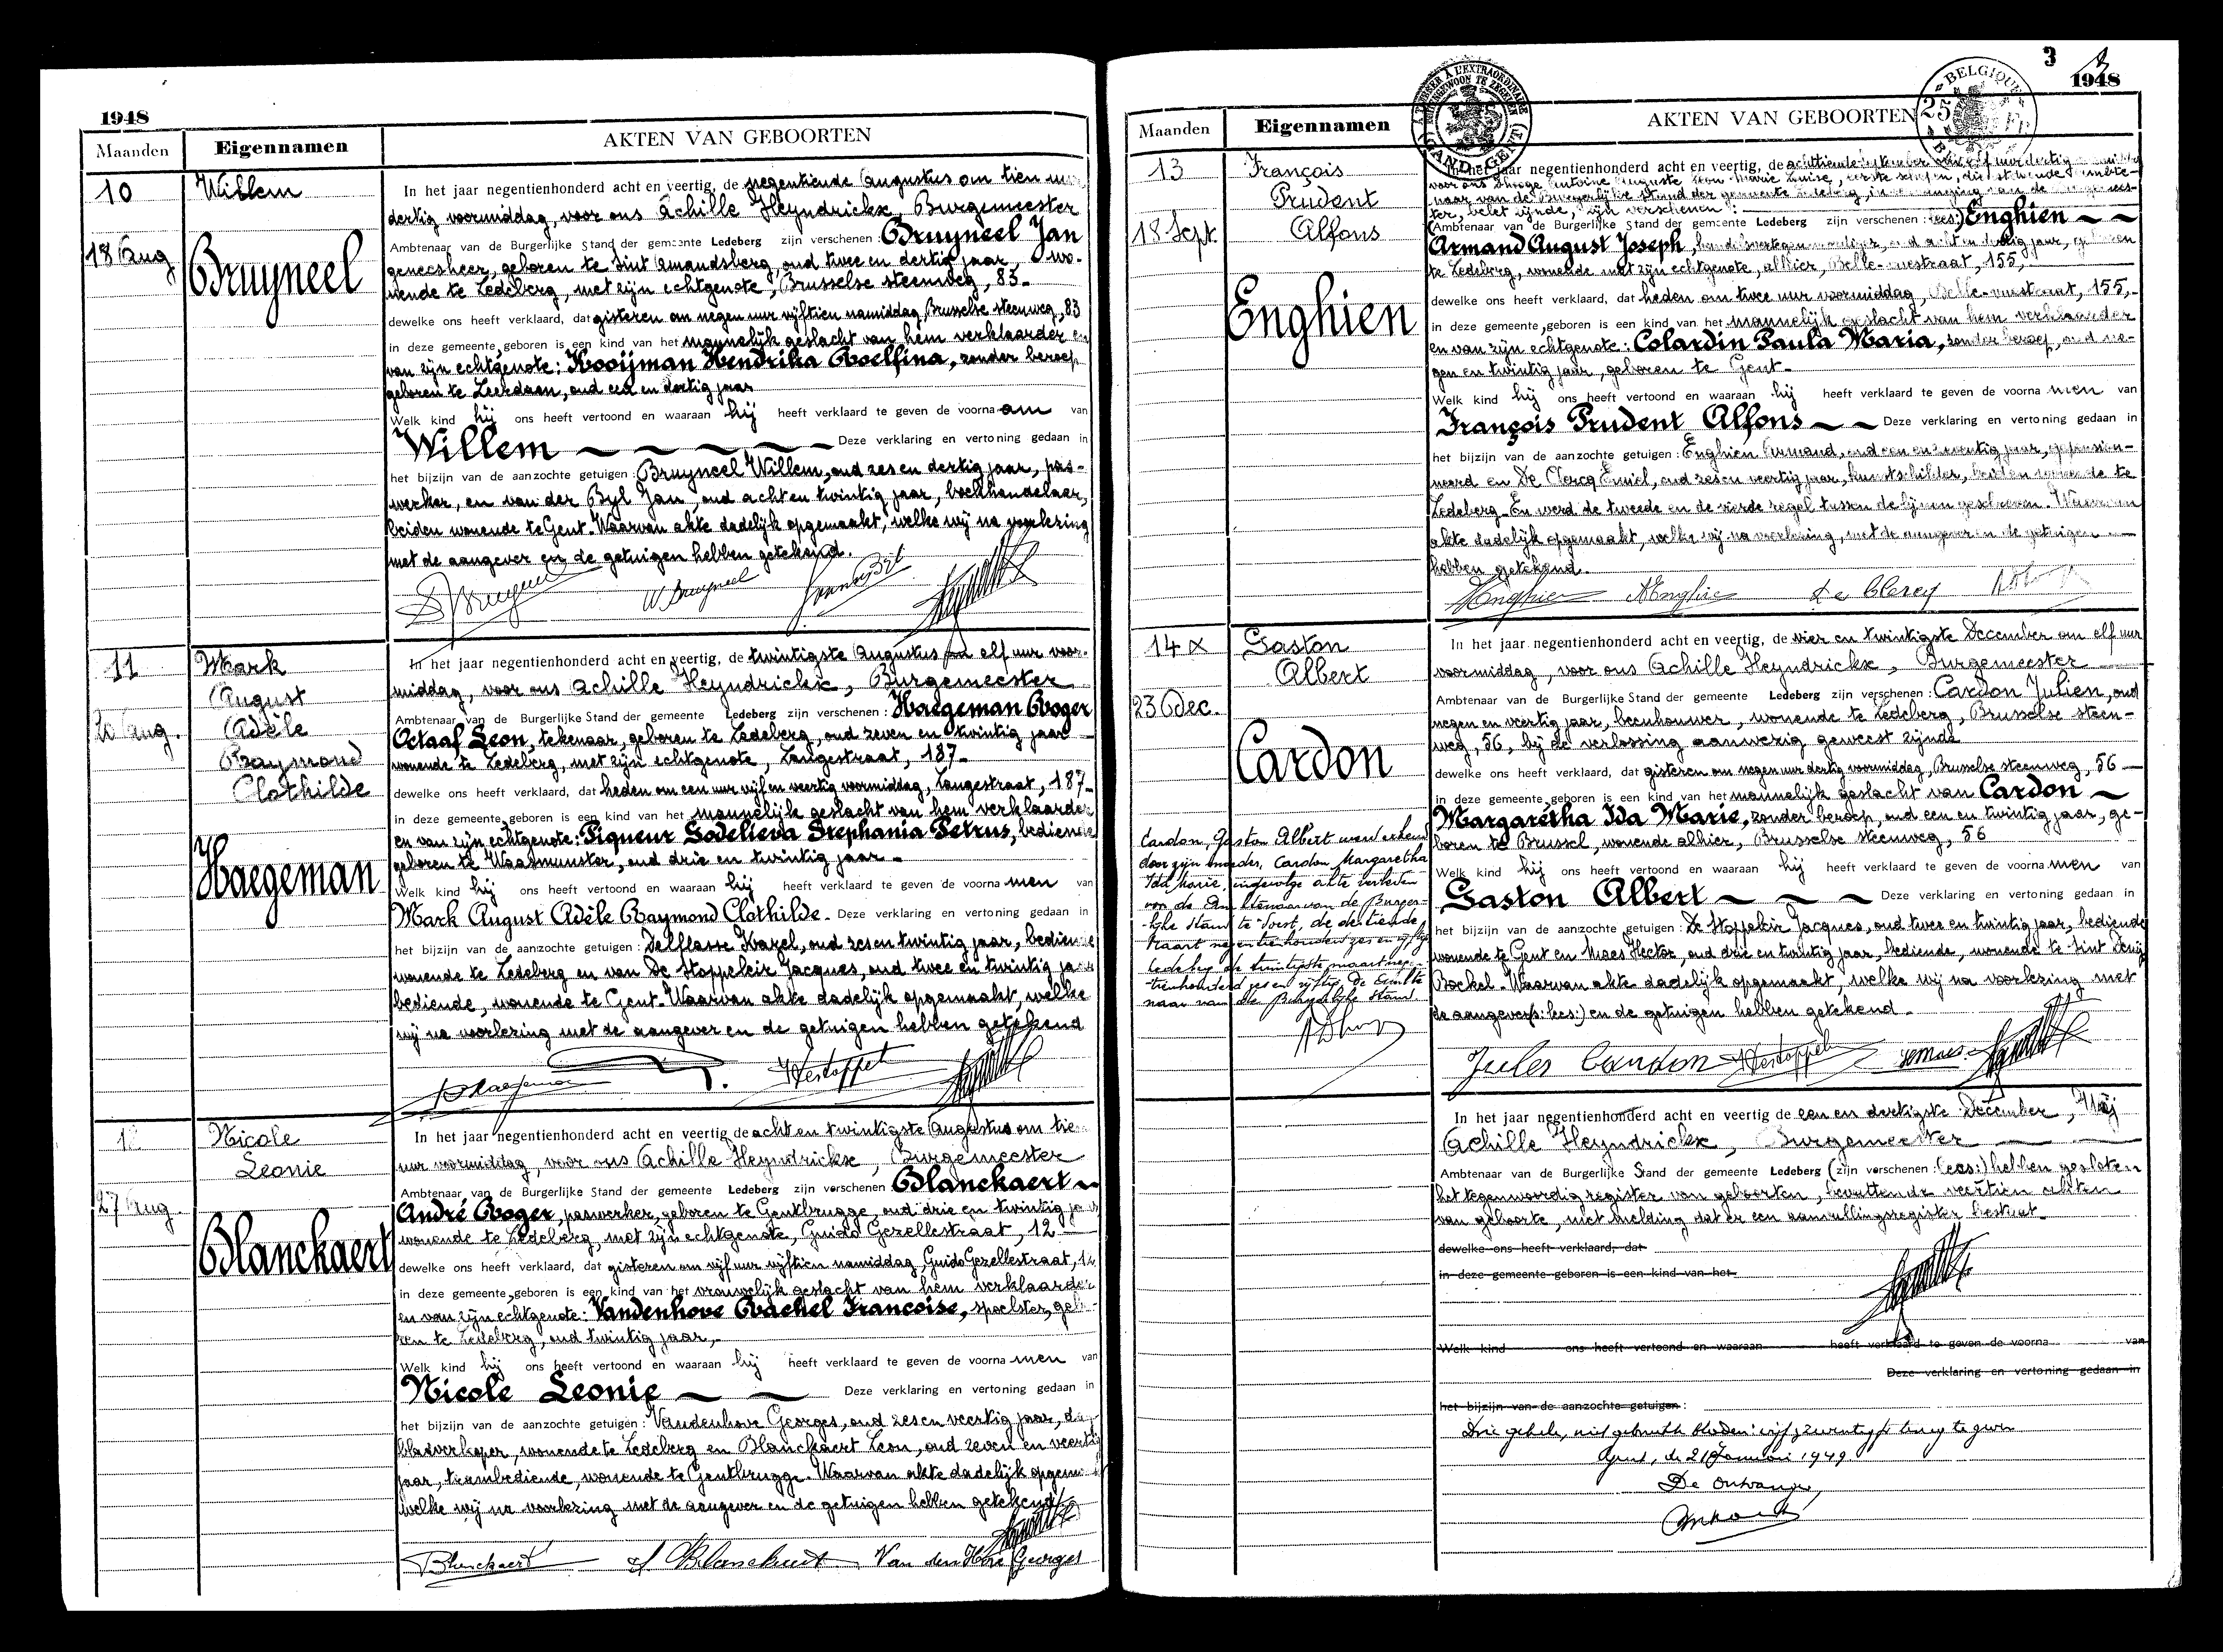 1948
Maanden
Eigennamen
AKTEN VAN GEBOORTEN
10
Willem
18 Aug
Bruyneel
In het jaar negentienhonderd acht en veertig, de negentiende Augustus om tien uur
dertig voormiddag, voor ons Achille Heyndrickx, Burgemeester
Ambtenaar van de Burgerlijke Stand der gemeente Ledeberg zijn verschenen: Bruyneel Jan
geneesheer, geboren te Sint Amandsberg, oud twee en dertig jaar, wo-
nende te Ledeberg, met zijn echtgenote, Brusselse steenweg, 83-
dewelke ons heeft verklaard, dat gisteren om negen uur vijftien namiddag, Brusselse steenweg, 83
in deze gemeente geboren is een kind van het mannelijk geslacht van hem verklaarder en
van zijn echtgenote: Kooijman Hendrika Roelfina, zonder beroep
geboren te Leerdam, oud een en dertig jaar
Welk kind hij ons heeft vertoond en waaraan hij heeft verklaard te geven de voornaam van
Willem Deze verklaring en vertoning gedaan in
het bijzijn van de aanzochte getuigen: Bruyneel Willem, oud zes en dertig jaar, pas-
werker, en van der Byl Jan, oud acht en twintig jaar, boekhandelaar,
beiden wonende te Gent. Waarvan akte dadelijk opgemaakt, welke wij na voorlezing
met de aangever en de getuigen hebben getekend.
W. Bruyneel
11
Mark
August
Adèle
Raymond
Clothilde
20 Aug.
Haegeman
In het jaar negentienhonderd acht en veertig, de twintigste Augustus om elf uur voor-
middag, voor ons Achille Heyndrickx, Burgemeester
Ambtenaar van de Burgerlijke Stand der gemeente Ledeberg zijn verschenen: Haegeman Roger
Octaaf Leon, tekenaar, geboren te Ledeberg, oud zeven en twintig jaar
wonende te Ledeberg, met zijn echtgenote, Langestraat, 187-
dewelke ons heeft verklaard, dat heden om een uur vijf en veertig voormiddag, Langestraat, 187-
in deze gemeente geboren is een kind van het mannelijk geslacht van hem verklaarder
en van zijn echtgenote: Piqueur Godelieva Stephania Petrus, bediende
geboren te Waasmunster, oud drie en twintig jaar-
Welk kind hij ons heeft vertoond en waaraan hij heeft verklaard te geven de voornamen van
Mark August Adèle Raymond Clothilde- Deze verklaring en vertoning gedaan in
het bijzijn van de aanzochte getuigen: Delflasse Karel, oud zes en twintig jaar, bediende
wonende te Ledeberg en van De Stoppeleir Jacques, oud twee en twintig jaar
bediende, wonende te Gent. Waarvan akte dadelijk opgemaakt, welke
wij na voorlezing met de aangever en de getuigen hebben getekend
12
Nicole
Leonie
27 Aug.
Blanckaert
In het jaar negentienhonderd acht en veertig de acht en twintigste Augustus om tien
uur voormiddag, voor ons Achille Heyndrickx, Burgemeester
Ambtenaar van de Burgerlijke Stand der gemeente Ledeberg zijn verschenen Blanckaert
André Roger, paswerker, geboren te Gentbrugge, oud drie en twintig jaar
wonende te Ledeberg, met zijn echtgenote, Guido Gezellestraat, 12
dewelke ons heeft verklaard, dat gisteren om vijf uur vijftien namiddag, Guido Gezellestraat, 12
in deze gemeente geboren is een kind van het vrouwelijk geslacht van hem verklaarder
en van zijn echtgenote: Vandenhove Rachel Francoise, spoelster, gebo-
ren te Ledeberg, oud twintig jaar,-
Welk kind hij ons heeft vertoond en waaraan hij heeft verklaard te geven de voornamen van
Nicole Leonie Deze verklaring en vertoning gedaan in
het bijzijn van de aanzochte getuigen: Vandenhove Georges, oud zes en veertig jaar, dag-
bladverkoper, wonende te Ledeberg en Blanckaert Leon, oud zeven en veertig
jaar, trambediende, wonende te Gentbrugge. Waarvan akte dadelijk opgemaakt
welke wij na voorlezing met de aangever en de getuigen hebben getekend
Blanckaert Blanckaert Van den Hove Georges
3
1948
Maanden
Eigennamen
AKTEN VAN GEBOORTEN
GAND-GENT
BELGIQUE
25 Fr
13
François
Prudent
Alfons
18 Sept.
Enghien
In het jaar negentienhonderd acht en veertig, de achttiende September
naar van de Burgerlijke Stand der gemeente Ledeberg, in
ter, belet zijnde, zijn verschenen:
(Ambtenaar van de Burgerlijke Stand der gemeente Ledeberg zijn verschenen: lees:) Enghien
Armand August Joseph, handelsvertegenwoordiger, oud acht en dertig jaar, geboren
te Ledeberg, wonende met zijn echtgenote, alhier, Belle-vuestraat, 155,-
dewelke ons heeft verklaard, dat heden om twee uur voormiddag, Belle-vuestraat, 155,-
in deze gemeente geboren is een kind van het mannelijk geslacht van hem verklaarder
en van zijn echtgenote: Colardin Paula Maria, zonder beroep, oud ne-
gen en twintig jaar, geboren te Gent-
Welk kind hij ons heeft vertoond en waaraan hij heeft verklaard te geven de voornamen van
François Prudent Alfons Deze verklaring en vertoning gedaan in
het bijzijn van de aanzochte getuigen: Enghien Armand, oud een en zeventig jaar, gepension-
neerd en De Clercq Emiel, oud zes en veertig jaar, kunstschilder, beiden wonende te
Ledeberg. En werd de tweede en de vierde regel tussen de lijnen geschreven. Waarvan
akte dadelijk opgemaakt, welke wij na voorlezing, met de aangever en de getuigen
hebben getekend.
Enghien AEnghien De Clercq
14 x
Gaston
Albert
23 Dec.
Cardon
In het jaar negentienhonderd acht en veertig, de vier en twintigste December om elf uur
voormiddag, voor ons Achille Heyndrickx, Burgemeester
Ambtenaar van de Burgerlijke Stand der gemeente Ledeberg zijn verschenen: Cardon Julien, oud
negen en veertig jaar, beenhouwer, wonende te Ledeberg, Brusselse steen-
weg, 56, bij de verlossing aanwezig geweest zijnde
dewelke ons heeft verklaard, dat gisteren om negen uur dertig voormiddag, Brusselse steenweg, 56
in deze gemeente geboren is een kind van het mannelijk geslacht van Cardon
Margaretha Ida Marie, zonder beroep, oud een en twintig jaar, ge-
boren te Brussel, wonende alhier, Brusselse steenweg, 56
Welk kind hij ons heeft vertoond en waaraan hij heeft verklaard te geven de voornamen van
Gaston Albert Deze verklaring en vertoning gedaan in
het bijzijn van de aanzochte getuigen: De Stoppeleir Jacques, oud twee en twintig jaar, bediende
wonende te Gent en Maes Hector, oud drie en twintig jaar, bediende, wonende te Sint Denijs
Boekel. Waarvan akte dadelijk opgemaakt, welke wij na voorlezing met
de aangever(s: lees:) en de getuigen hebben getekend-
Jules Cardon
Cardon, Gaston Albert werd erkend
door zijn moeder, Cardon Margaretha
Ida Marie, ingevolge akte verleden
voor de Ambtenaar van de Burger-
lijke Stand te Soest, de dertiende
Maart negentienhonderd zes en vijftig
Ledeberg de twintigste maart negen-
tienhonderd zes en vijftig. De Ambte
naar van de Burgerlijke Stand.
In het jaar negentienhonderd acht en veertig de een en dertigste December, Wij
Achille Heyndrickx, Burgemeester
Ambtenaar van de Burgerlijke Stand der gemeente Ledeberg (zijn verschenen: lees:) hebben gesloten
het tegenwoordig register van geboorten, bevattende veertien akten
van geboorte, met melding dat er een aanvullingsregister bestaat-
dewelke ons heeft verklaard, dat
in deze gemeente geboren is een kind van het
Welk kind ons heeft vertoond en waaraan heeft verklaard te geven de voorna van
Deze verklaring en vertoning gedaan in
het bijzijn van de aanzochte getuigen:
Drie gehele, niet gebruikte bladen: vijf zeventig fr terug te geven
Gent, de 21 Januari 1949
De Ontvanger,